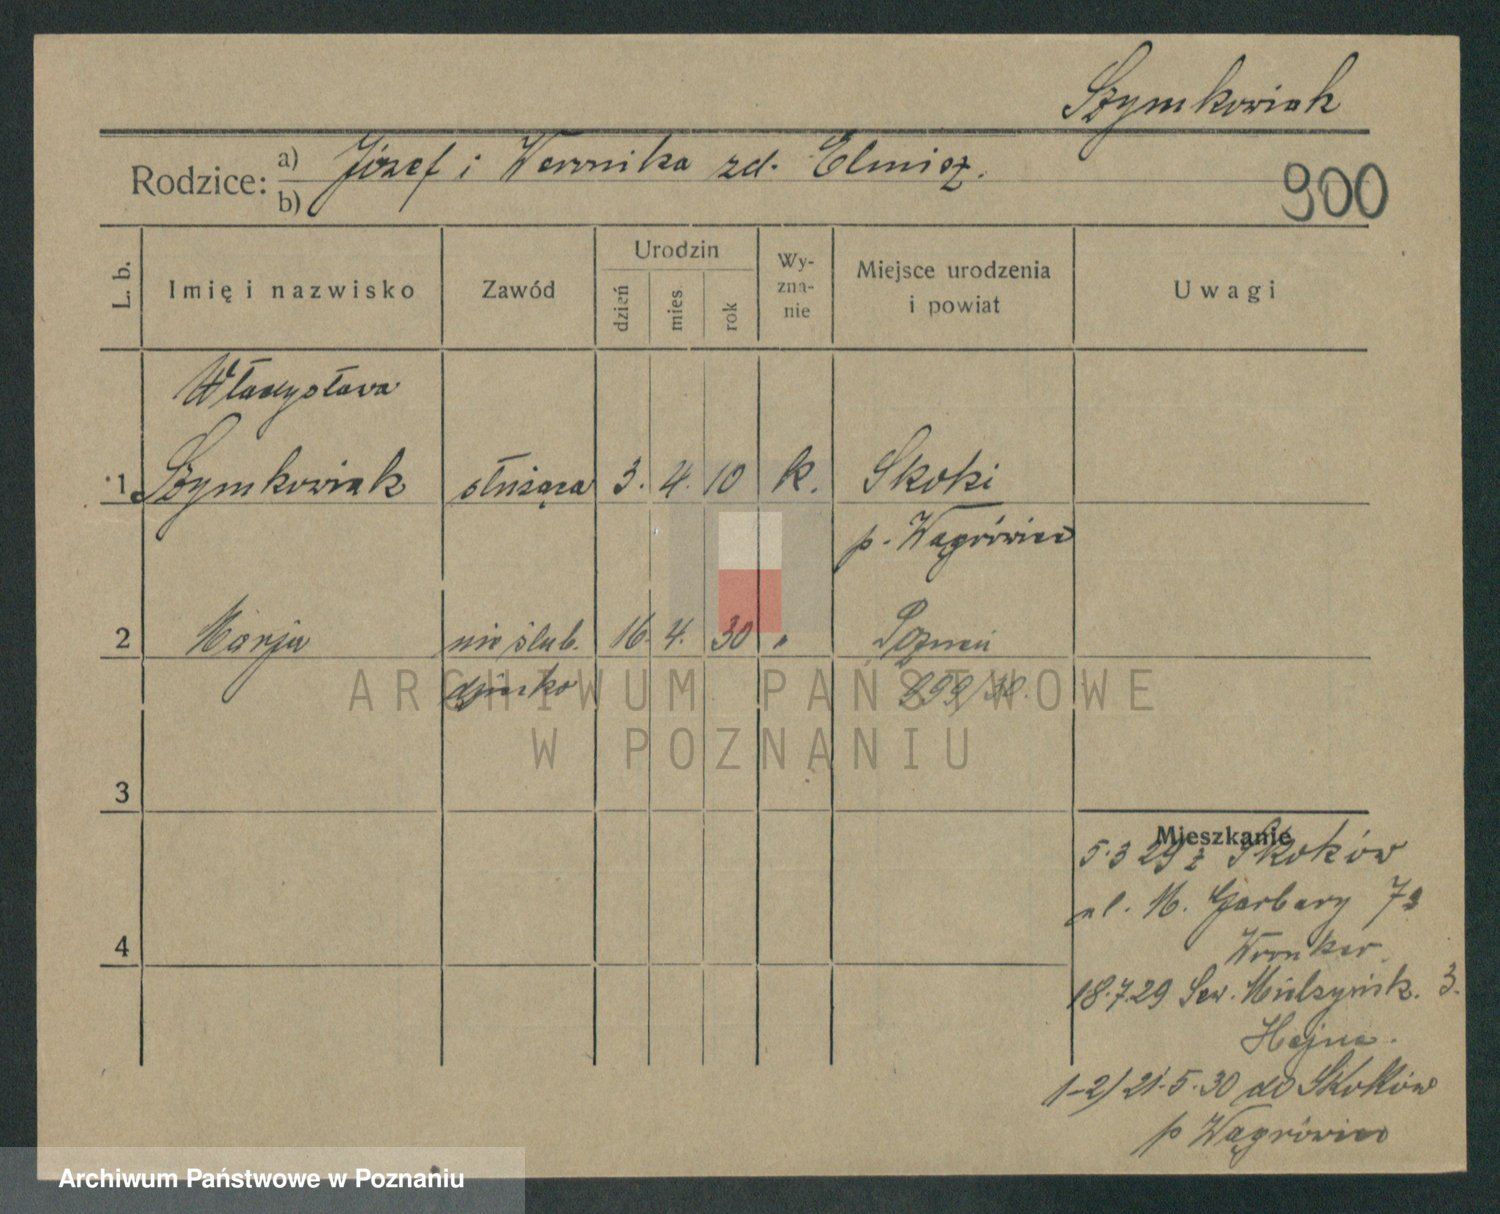 Szymkowiak
Rodzice: a) Józef i Weronika zd. Elmisz.
b)
900
L. b.
Imię i nazwisko
Zawód
Urodzin
dzień
mies
rok
Wy-
zna-
nie
Miejsce urodzenia
i powiat
Uwagi
Władysława
1 Szymkowiak służąca 3. 4. 10 k. Skoki
p. Wągrówiec
2 Marja nieślub. 16. 4. 30 " Poznań
dziecko 899/30.
3
4
Mieszkanie
5.3 29 z Skoków
ul. M. Garbary
18.7.29 Sew. Mielżyńsk. 3.
Hejna.
1-2/ 21.5.30 do Skoków
p Wągrówiec
ARCHIWUM PAŃSTWOWE
W POZNANIU
Archiwum Państwowe w Poznaniu